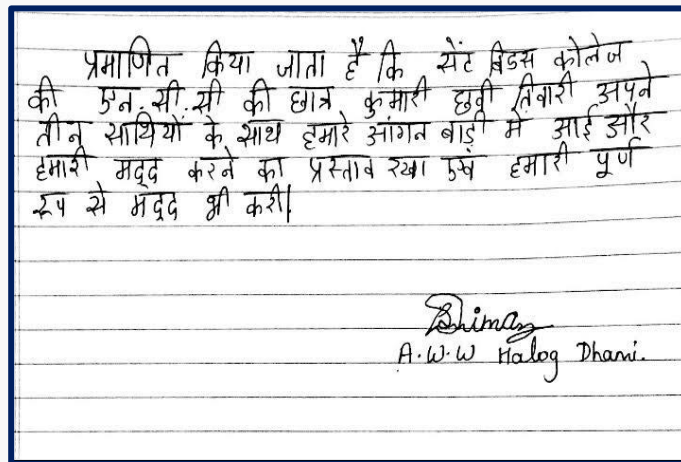 प्रमाणित किया जाता है कि सेंट बिडस कोलेज
की एन.सी.सी की छात्र कुमारी छवी तिवारी अपने
तीन साथियों के साथ हमारे आंगन बाड़ी में आई और
हमारी मद्द करने का प्रस्ताव रखा एंव हमारी पूर्ण
रूप से मद्द भी करी।
A.W.W Halog Dhami.